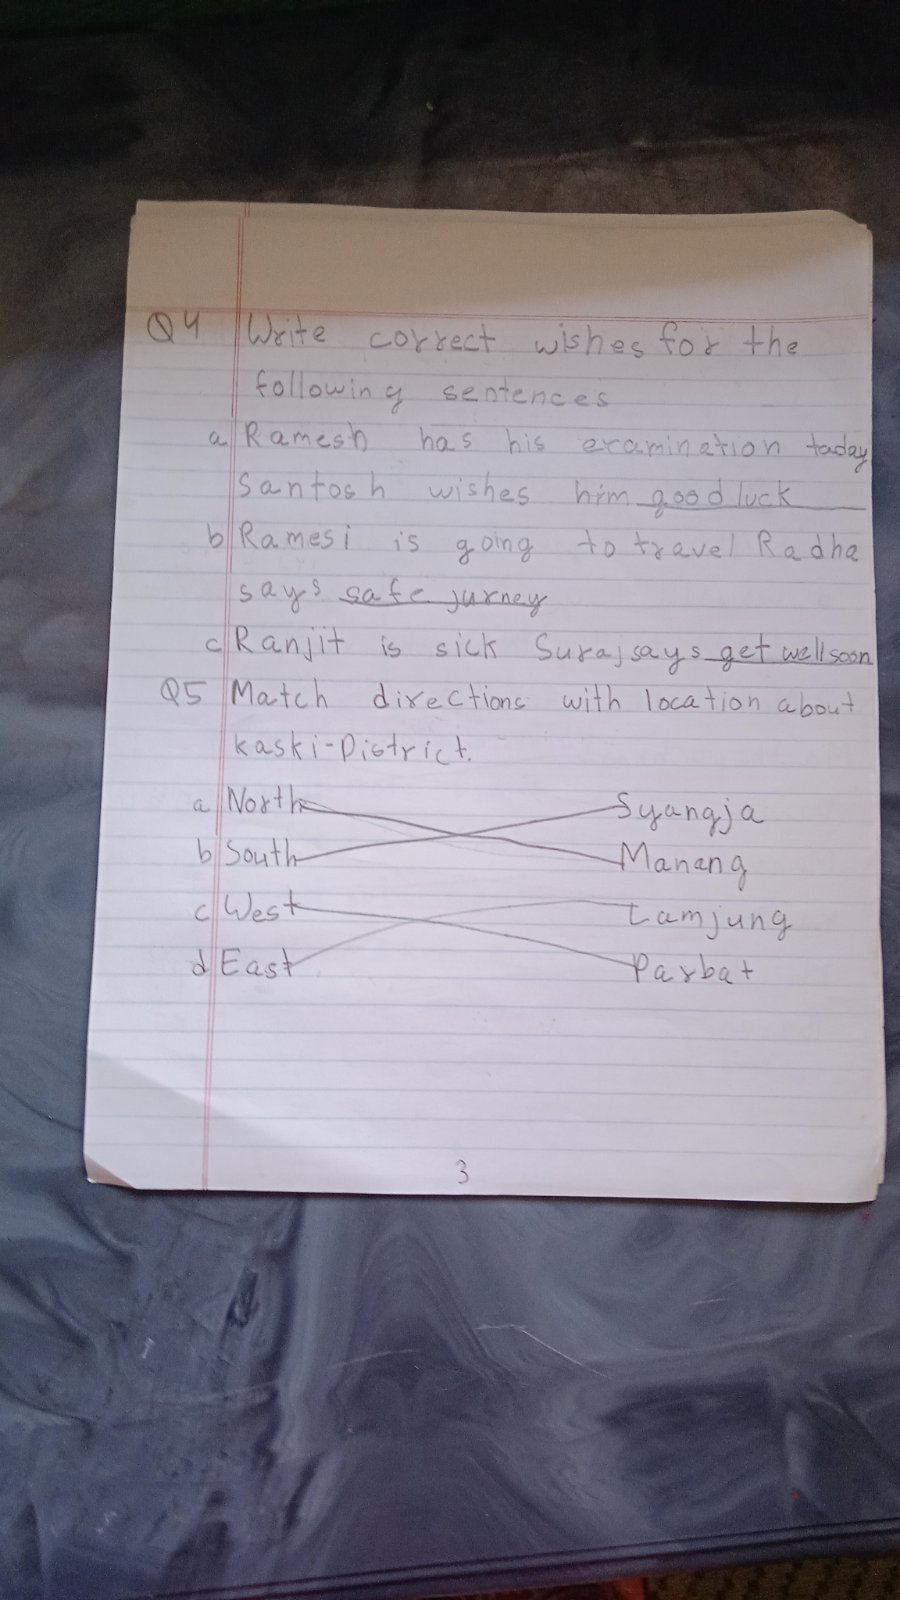 Q4 Write correct wishes for the
following sentences
a Ramesh has his examination taday
Santosh wishes him good luck
b Ramesi is going to travel Radha
says safe jurney
c Ranjit is sick Suraj says get well soon
Q5 Match directions with location about
kaski-District.
a North Syangja
b South Manang
c West Lamjung
d East Parbat
3